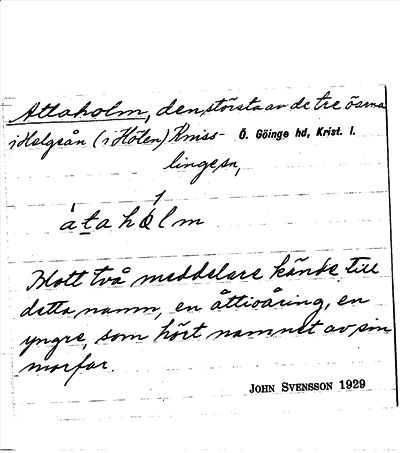 Attaholm, den största av de tre öarna
i Helgeån (i Höten) Knis- Ö. Göinge hd, Krist. l.
linge sn,
átahólm
Blott två meddelare kände till
detta namn, en åttioåring, en
yngre, som hört namnet av sin
morfar.
JOHN SVENSSON 1929